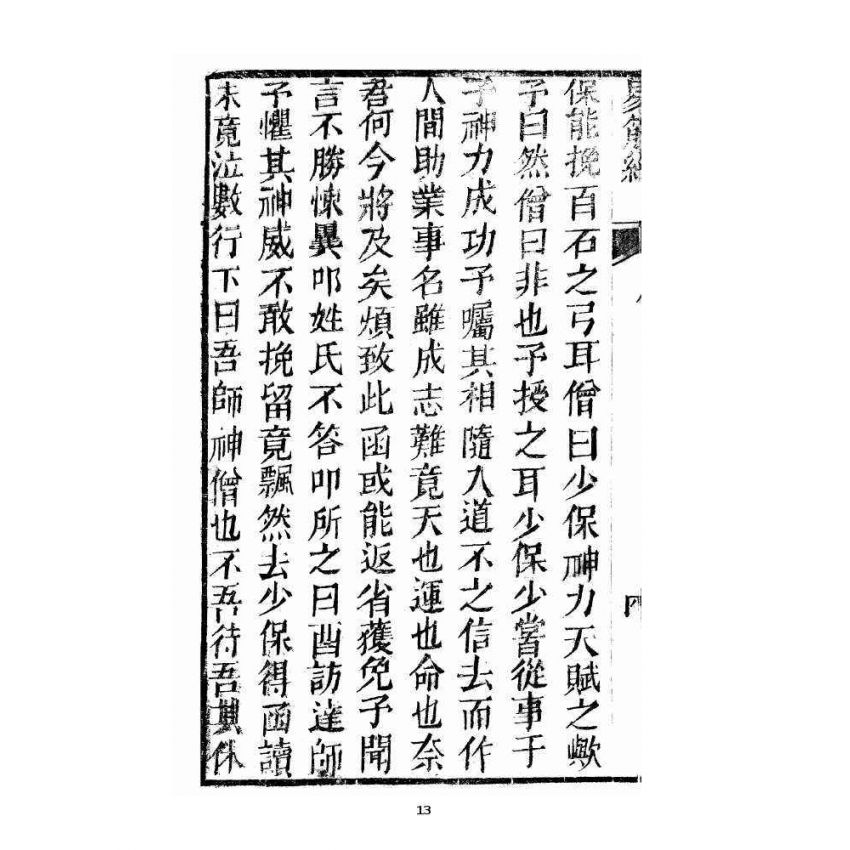 易筋經
四
保能挽百石之弓耳僧曰少保神力天賦之歟
予曰然僧曰非也予授之耳少保少嘗從事于
予神力成功予囑其相隨入道不之信去而作
人間助業事名雖成志難竟天也運也命也奈
君何今將及矣煩致此函或能返省獲免予聞
言不勝悚異叩姓氏不答叩所之曰西訪達師
予懼其神威不敢挽留竟飄然去少保得函讀
未竟泣數行下曰吾師神僧也不吾待吾其休
13